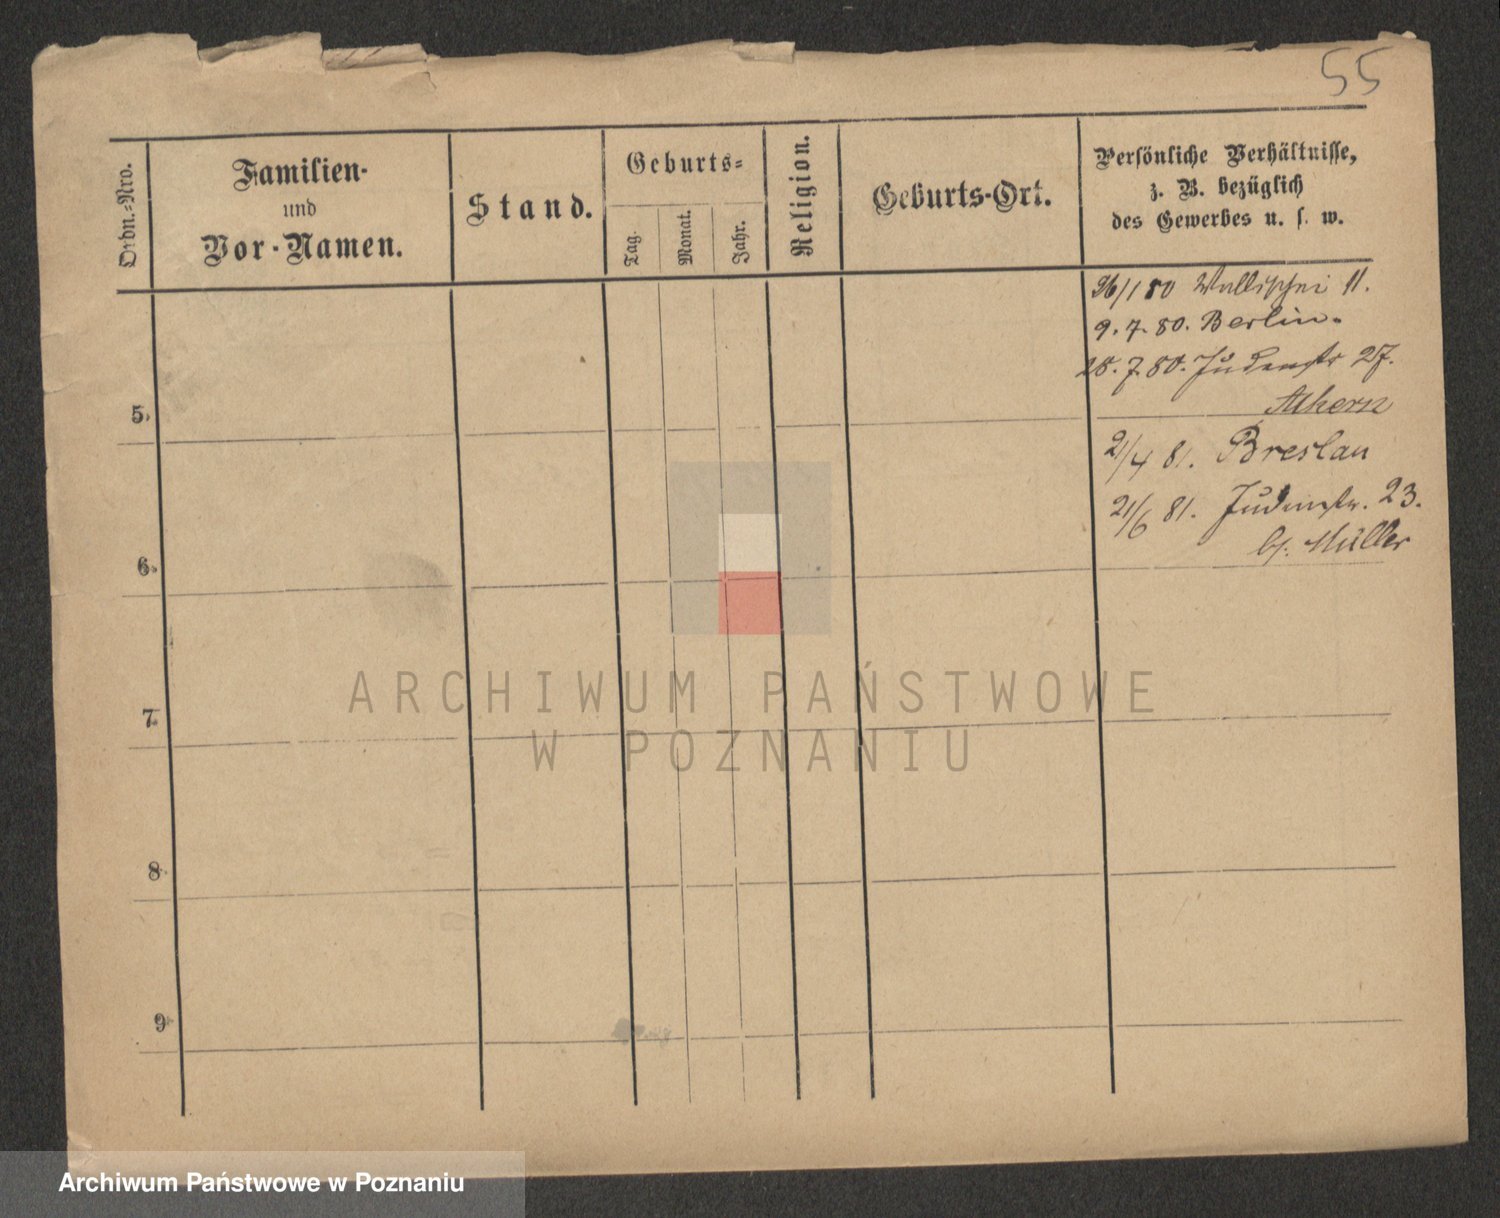 55
Ordn.-Nro.
Familien-
und
Vor-Namen.
Stand.
Geburts-
Tag.
Monat.
Jahr.
Religion.
Geburts-Ort.
Persönliche Verhältnisse,
z. B. bezüglich
des Gewerbes u. s. w.
26/1 80 Wallischei 11.
9. 7. 80. Berlin.
28. 7. 80. Judenstr 27.
5.
21/4 81. Breslau
21/6 81. Judenstr. 23.
b. Müller
6.
ARCHIWUM PAŃSTWOWE
W POZNANIU
7.
8.
9.
Archiwum Państwowe w Poznaniu